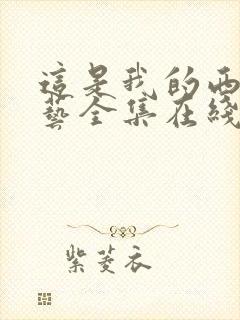 這是我的西
藝全集在綫
紫菱衣